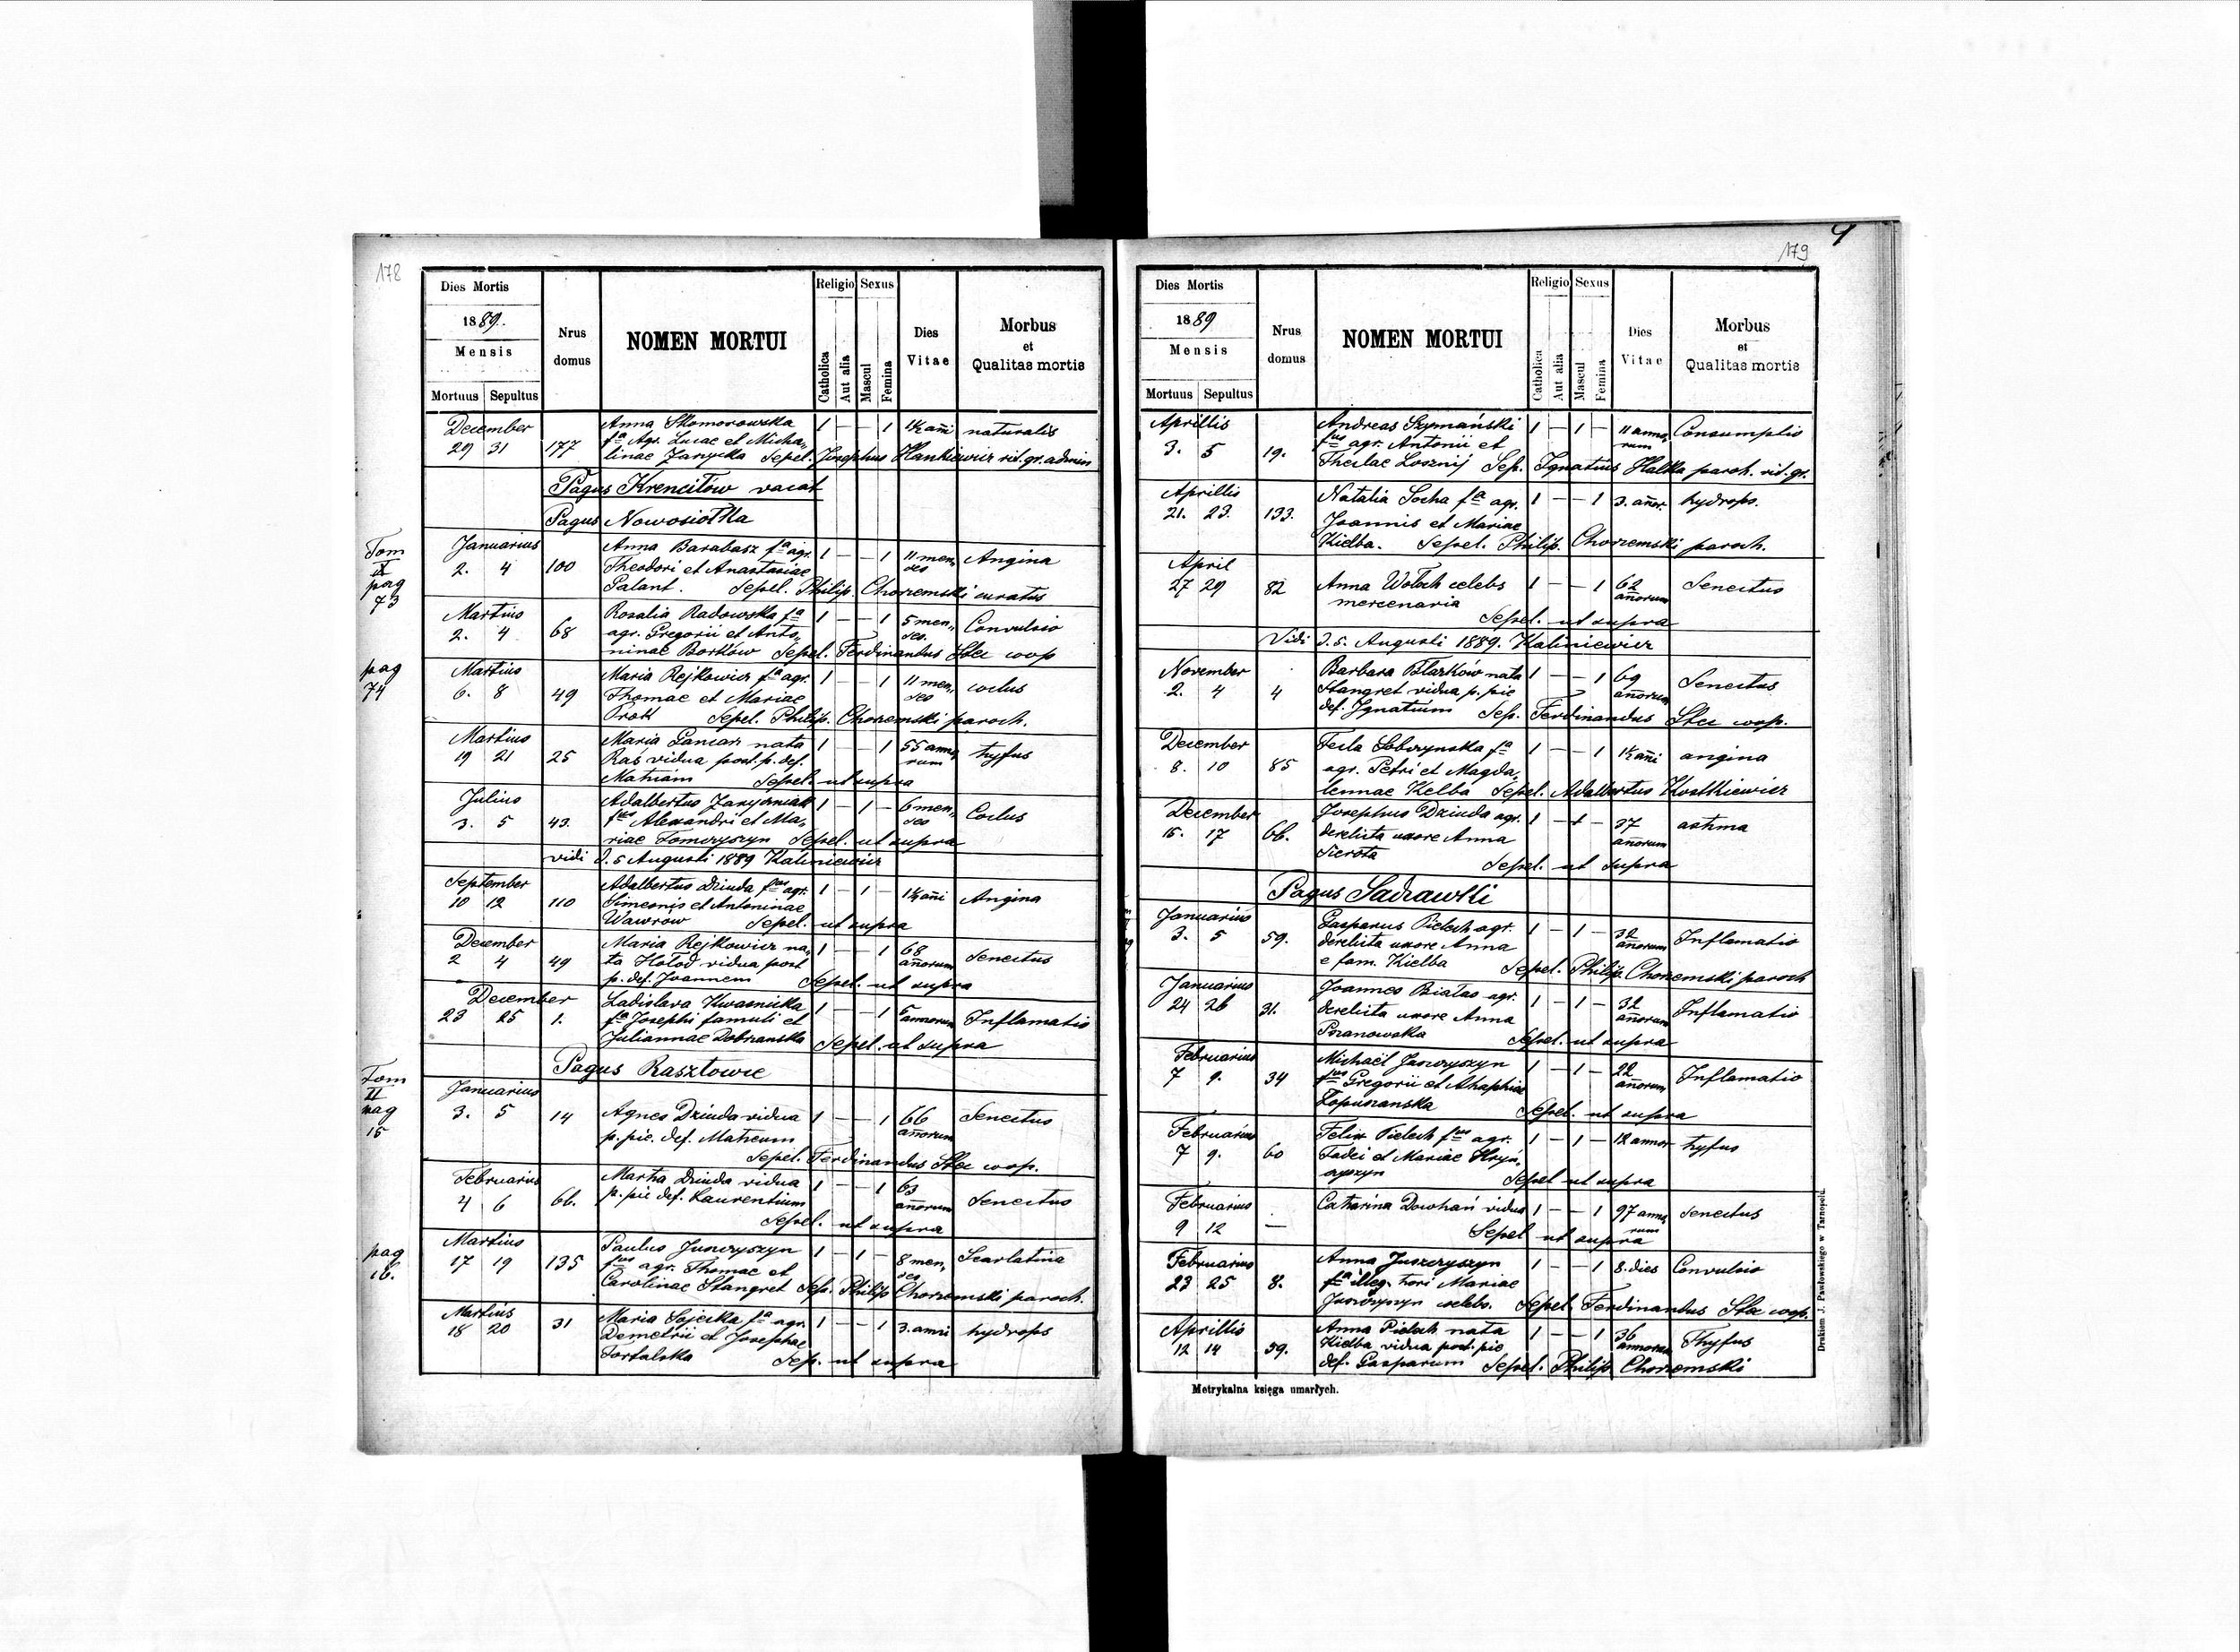 178
Dies Mortis
1889.
Mensis
Mortuus Sepultus
Nrus domus
NOMEN MORTUI
Religio
Catholica
Aut alia
Sexus
Mascul
Femina
Dies Vitae
Morbus
et
Qualitas mortis
December
29 31 177
Anna Skomorowska 1 — — 1 1½ añi naturalis
fa Agr. Lucae et Micha„
linae Zarycka Sepel. Josephus Hankiewicz rit. gr. admin
Pagus Krencitów vacat
Pagus Nowosiołka
Tom
II
pag
73
Januarius
2. 4 100
Anna Barabasz fa agr. 1 — — 1 11 men„ses Angina
Theodori et Anastasiae
Palant. Sepel. Philip. Chorzemski curatus
Martius
2. 4 68
Rosalia Radowska fa 1 — — 1 5 men„ses. Convulsio
agr. Gregorii et Anto„
ninae Bortków Sepel. Ferdinandus Stec coop
pag
74
Martius
6. 8 49
Maria Rejkowicz fa agr. 1 — — 1 11 men„ses coclus
Thomae et Mariae
Sepel. Philip. Chorzemski paroch.
Martius
19 21 25
Maria Gancarz nata 1 — — 1 55 anno„rum tyfus
Ras vidua post. p. def.
Sepel. ut supra
Julius
3. 5 43.
Adalbertus Zaryczniak 1 — 1 — 6 men„ses Coclus
fus Alexandri et Ma„
riae Tomczyszyn Sepel. ut supra
vidi d. 5 Augusti 1889 Kaliniewicz
September
10 12 110
Adalbertus Dziuda fus agr. 1 — 1 — 1½ añi Angina
Simeonis et Antoninae
Wawrów Sepel. ut supra
December
2 4 49
Maria Rejkowicz na„ 1 — — 1 68 añorum Senectus
ta Hołod vidua post
p. def. Joannem Sepel. ut supra
December
23 25 1.
Ladislava Kwasnicka 1 — — 1 annorum Inflamatio
fa Josephi famuli et
Juliannae Dobrzanska Sepel. ut supra
Pagus Rasztowce
Tom
II
pag
15
Januarius
3. 5 14
Agnes Dziuda vidua 1 — — 1 66 añorum Senectus
p. pie. def. Matheum
Sepel. Ferdinandus Stec coop.
Februarius
4 6 66.
Martha Dziuda vidua 1 — — 1 63 añorum Senectus
p. pie def. Laurentium
Sepel. ut supra
pag
16.
Martius
17 19 135
Paulus Juszczyszyn 1 — 1 — 8 men„ses Scarlatina
fus agr. Thomae et
Carolinae Stangret Sep. Philip Chorzemski paroch.
Martius
18 20 31
Maria Sojecka fa agr. 1 — — 1 3. anni hydrops
Demetrii et Josephae
Tortalska Sep. ut supra
179
Dies Mortis
1889
Mensis
Mortuus Sepultus
Nrus domus
NOMEN MORTUI
Religio
Catholica
Aut alia
Sexus
Mascul
Femina
Dies Vitae
Morbus
et
Qualitas mortis
Aprillis
3. 5 19.
Andreas Szymański 1 — 1 — 11 anno„rum Consumptio
fus agr. Antonii et
Theclae Losznij Sep. Ignatius Halka paroch. rit. gr.
Aprillis
21. 23. 133.
Natalia Socha fa agr. 1 — — 1 3. añor. hydrops.
Joannis et Mariae
Kielba. Sepel. Philip. Chorzemski paroch.
April
27 29 82
Anna Wołoch celebs 1 — — 1 62 añorum Senectus
mercenaria
Sepel. ut supra
Vidi d. 5. Augusti 1889. Kaliniewicz
November
2. 4 4
Barbara Blazków nata 1 — — 1 69 añorum Senectus
Stangret vidua p. pie
def. Ignatium Sep. Ferdinandus Stec coop.
December
8. 10 85
Tecla Sobczynska fa 1 — — 1 1½ añi angina
agr. Petri et Magda„
lennae Kelba Sepel. Adalbertus Kostkiewicz
December
15. 17 66.
Josephus Dziuda agr. 1 — 1 — 37 añorum astma
derelicta uxore Anna
Sierota Sepel. ut supra
Pagus Sadzawki
Januarius
3. 5 59.
Gasparus Pielech agr. 1 — 1 — 32 añorum Inflamatio
derelicta uxore Anna
e fam. Kielba Sepel. Philip. Chorzemski paroch
Januarius
24 26 31.
Joannes Białas agr. 1 — 1 — 32 añorum Inflamatio
derelicta uxore Anna
Poranowska Sepel. ut supra
Februarius
7 9. 34
Michaël Juszczyszyn 1 — 1 — 22 añorum Inflamatio
fus Gregorii et Ahaphiae
Łopuszanska Sepel. ut supra
Februarius
7 9. 60
Felix Pielech fus agr. 1 — 1 — 12 annor tyfus
Tadei et Mariae Hryń„
czyszyn Sepel ut supra
Februarius
9 12 —
Catharina Dowhań vidua 1 — — 1 97 anno„rum Senectus
Sepel ut supra
Februarius
23 25 8.
Anna Juszczyszyn 1 — — 1 8. dies Convulsio
fa illeg. tori Mariae
Juszczyszyn celebs. Sepel Ferdinandus Stec coop.
Aprillis
12 14 59.
Anna Pielech nata 1 — — 1 36 annorum Thyfus
Kielba vidua post. pie
def. Gasparum Sepel. Philip Chorzemski
Metrykalna księga umarłych.
Drukiem J. Pawłowskiego w Tarnopolu.